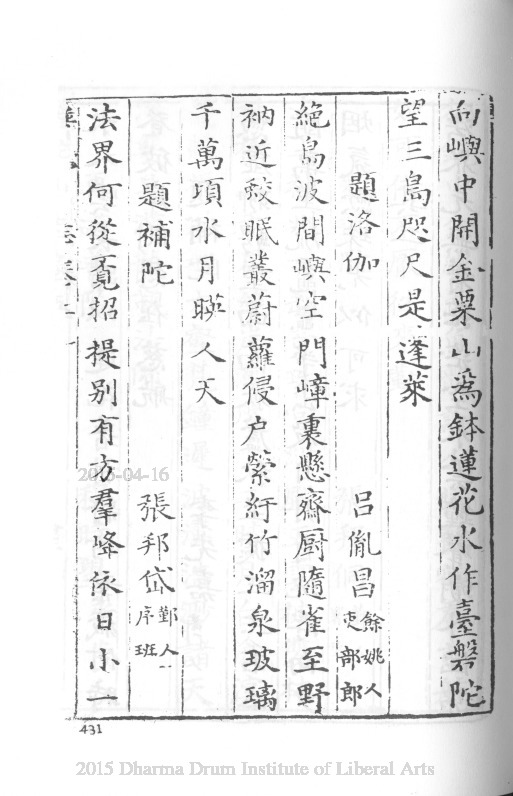 向嶼中開金粟山爲鉢蓮花水作臺磐陀
望三島咫尺是蓬萊
題洛伽 呂胤昌 餘姚人吏部郎
絶島波間嶼空門嶂裏懸齋厨隨雀至野
衲近鮫眠叢蔚蘿侵户縈紆竹溜泉玻璃
千萬頃水月暎人天
題補陀 張邦岱 鄞人序班
法界何從覔招提别有方羣峰依日小一
431
2015-04-16
2015 Dharma Drum Institute of Liberal Arts